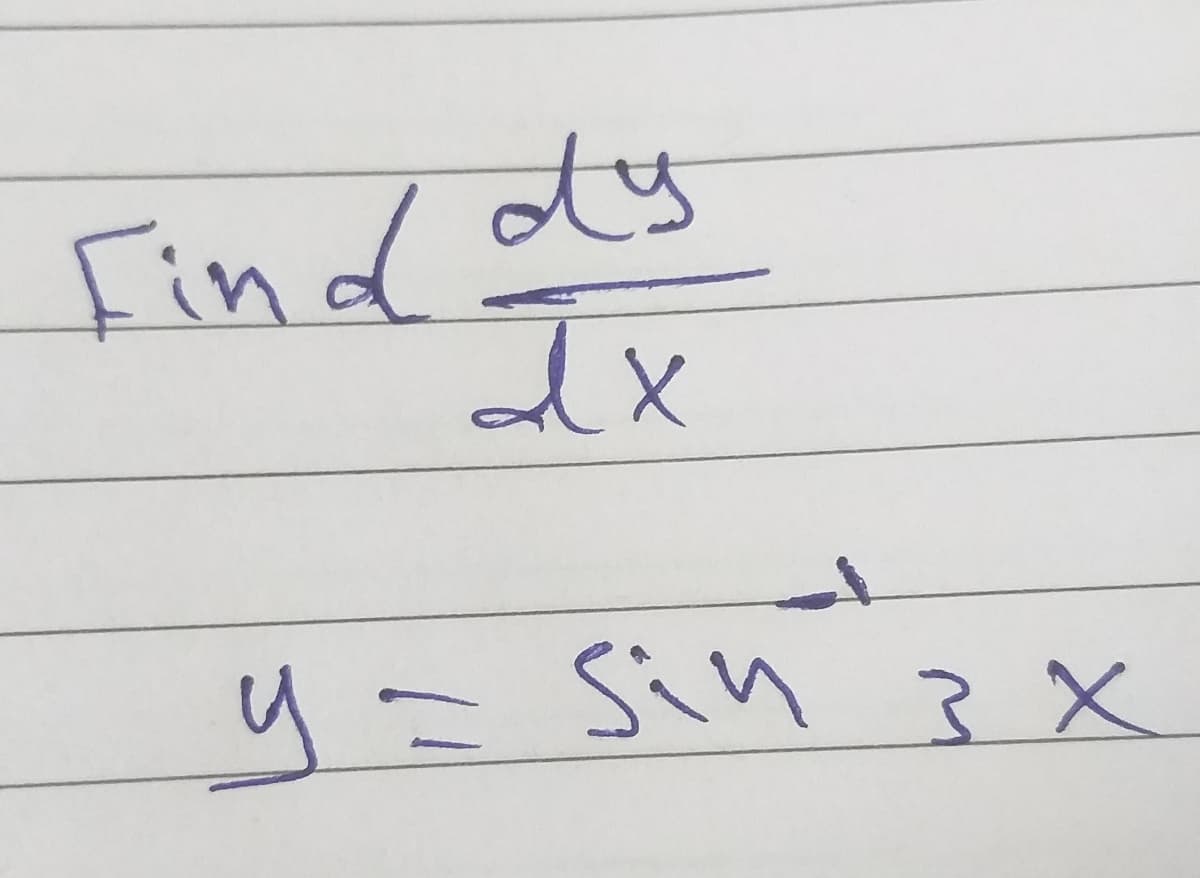 Find dy/dx
y = sin⁻¹ 3x